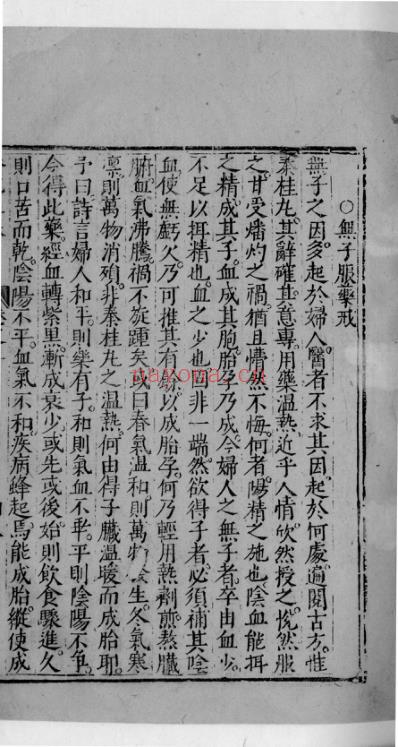 ○無子服藥戒
無子之因多起於婦人醫者不求其因起於何處遍閱古方惟
秦桂丸其辭確其意專用藥溫熱近乎人情欣然授之恍然服
之甘受燔灼之禍猶且懵然不悔何者陽精之施也陰血能挕
之精成其子血成其胞胎孕乃成今婦人之無子者率由血少
不足以挕精也血之少也固非一端然欲得子者必須補其陰
血使無虧欠乃可推其有餘以成胎孕何乃輕用熱劑煎熬臟
腑血氣沸騰禍不旋踵矣或曰春氣溫和則萬物發生冬氣寒
凜則萬物消殞非秦桂丸之溫熱何由得子臟溫暖而成胎耶
予曰詩言婦人和平則樂有子和則氣血不乖平則陰陽不爭
今得此藥經血轉紫黑漸成衰少或先或後始則飲食驟進久
則口苦而乾陰陽不平血氣不和疾病蜂起焉能成胎縱使成
nayona.cn